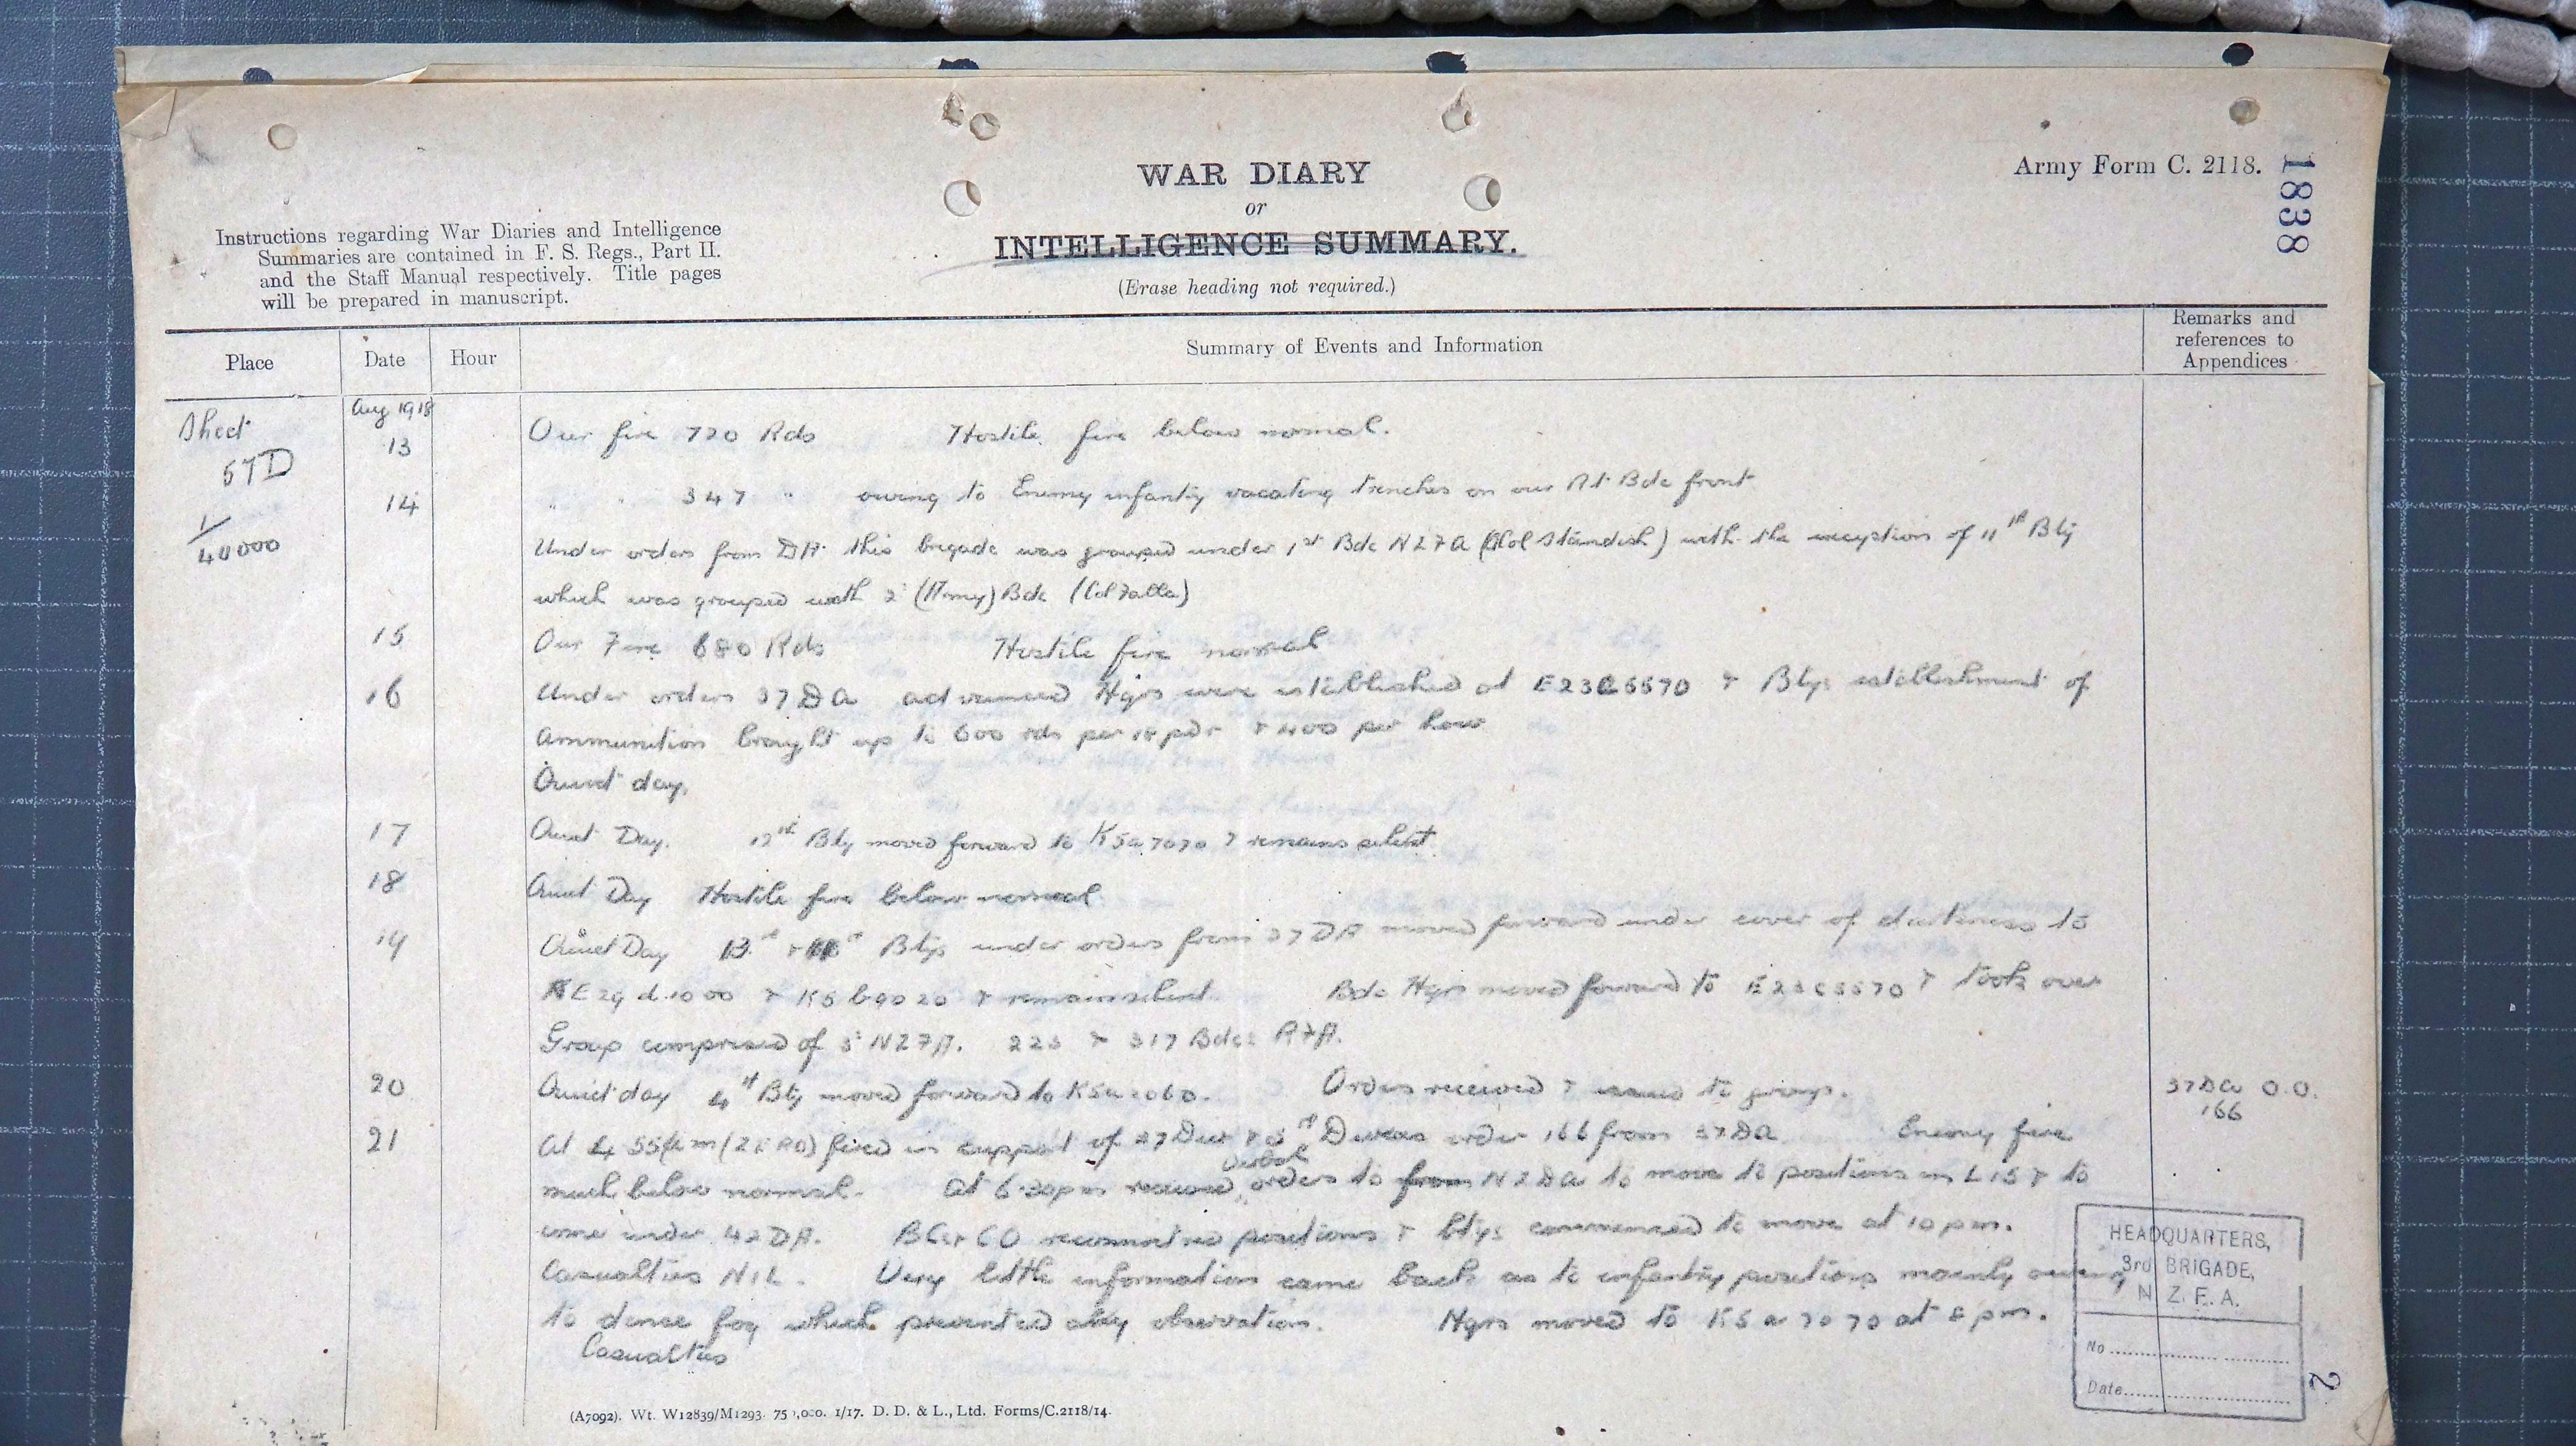 Army Form C. 2118.
1838
WAR DIARY
or
INTELLIGENCE SUMMARY.
(Erase heading not required.)
Instructions regarding War Diaries and Intelligence
Summaries are contained in F. S. Regs., Part II.
and the Staff Manual respectively. Title pages
will be prepared in manuscript.
Place Date Hour Summary of Events and Information Remarks and references to Appendices
Sheet 57D 1/40000
Aug 1918
13 Our fire 720 Rds Hostile fire below normal.
14 " " 347 " owing to Enemy infantry vacating trenches on our Rt Bde front
Under orders from DA this brigade was grouped under 1st Bde NZFA (Col Standish) with the exception of 11th Bty
which was grouped with 2 (Army) Bde (Col Falla)
15 Our Fire 680 Rds Hostile fire normal
16 Under orders 37 DA advanced Hqrs were established at E23C5570 & Btys establishment of
ammunition brought up to 600 rds per 18 pdr & 400 per how
Quiet day.
17 Quiet Day. 12th Bty moved forward to K5a7070 & remains silent
18 Quiet Day Hostile fire below normal
19 Quiet Day 13th & Btys under orders from 37 DA moved forward under cover of darkness to
E29d1000 & K5b9020 & remain silent. Bde Hqrs moved forward to E23C5570 & took over
Group comprised of 3 NZFA. 223 & 317 Bdes RFA.
20 Quiet day 4th Bty moved forward to K5a2060. Orders received & issued to group. 37DA O.O. 166
21 At 4 55am (ZERO) fired in support of 37 Div & 5th Div order 166 from 37DA Enemy fire
much below normal. At 6.30pm received verbal orders to from NZDA to move to positions in L15 & to
come under 42DA. BCs & CO reconnoitred positions & btys commenced to move at 10 pm.
Casualties NIL. Very little information came back as to infantry positions mainly owing
to dense fog which prevented any observation. Hqrs moved to K5a7070 at 8 pm.
Casualties
HEADQUARTERS,
3rd BRIGADE,
N. Z. F. A.
No
Date
2
(A7092). Wt. W12839/M1293. 75 ,000. 1/17. D. D. & L., Ltd. Forms/C.2118/14.